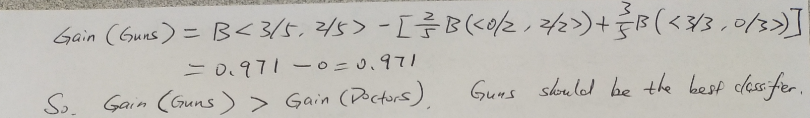 Gain (Guns) = B<3/5, 2/5> - [2/5 B(<0/2, 2/2>) + 3/5 B(<3/3, 0/3>)]
= 0.971 - 0 = 0.971
So. Gain (Guns) > Gain (Doctors). Guns should be the best classifier.